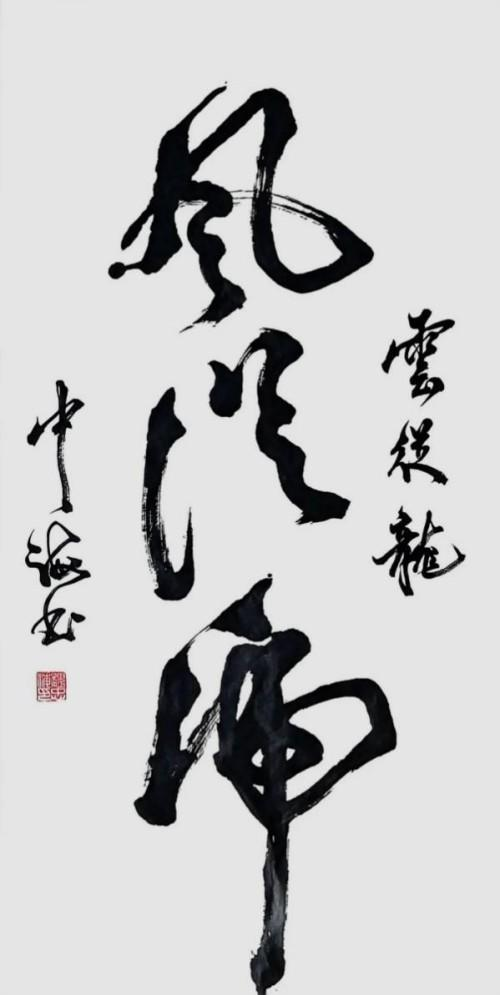 雲從龍
風從虎
中海书